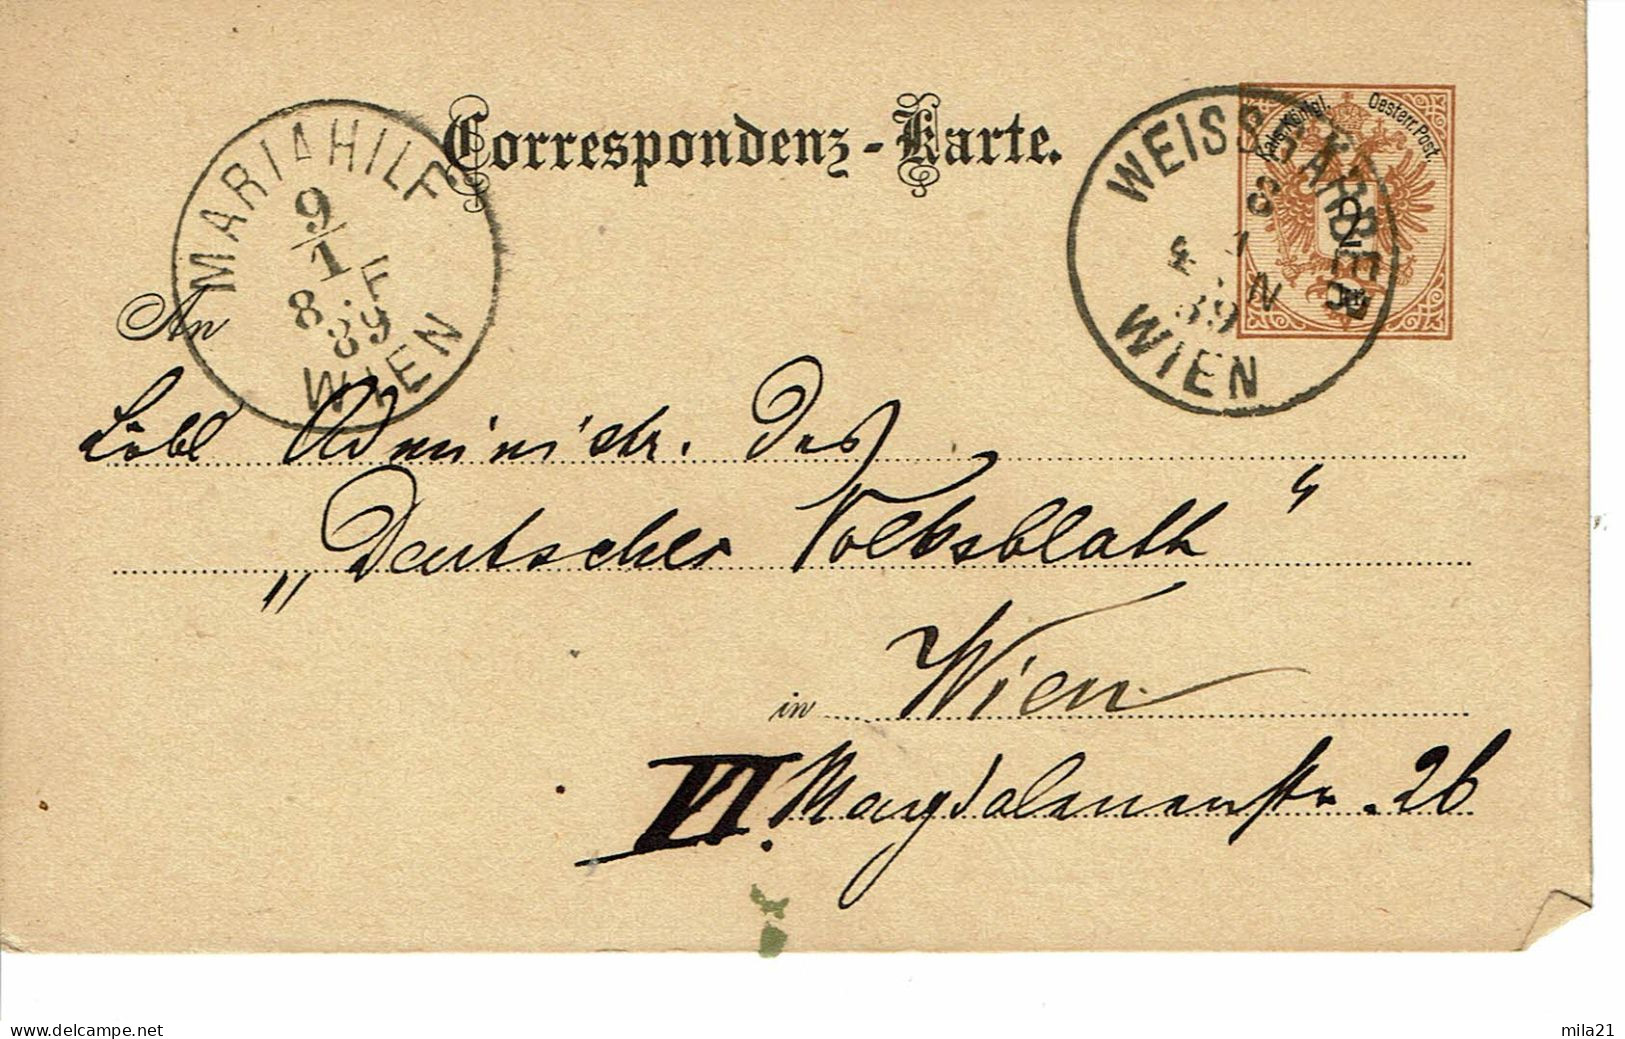 Correspondenz-Karte.
MARIAHILF
9/1
8 F
89
WIEN
WEISSGÄRBER
8 1
4 N
89
WIEN
Kais. Königl. Oesterr. Post.
2
An
Löbl Administr. des
„Deutsches Volksblatt“
in Wien
VI. Magdalenenstr. 26
delcampe.net
mila21